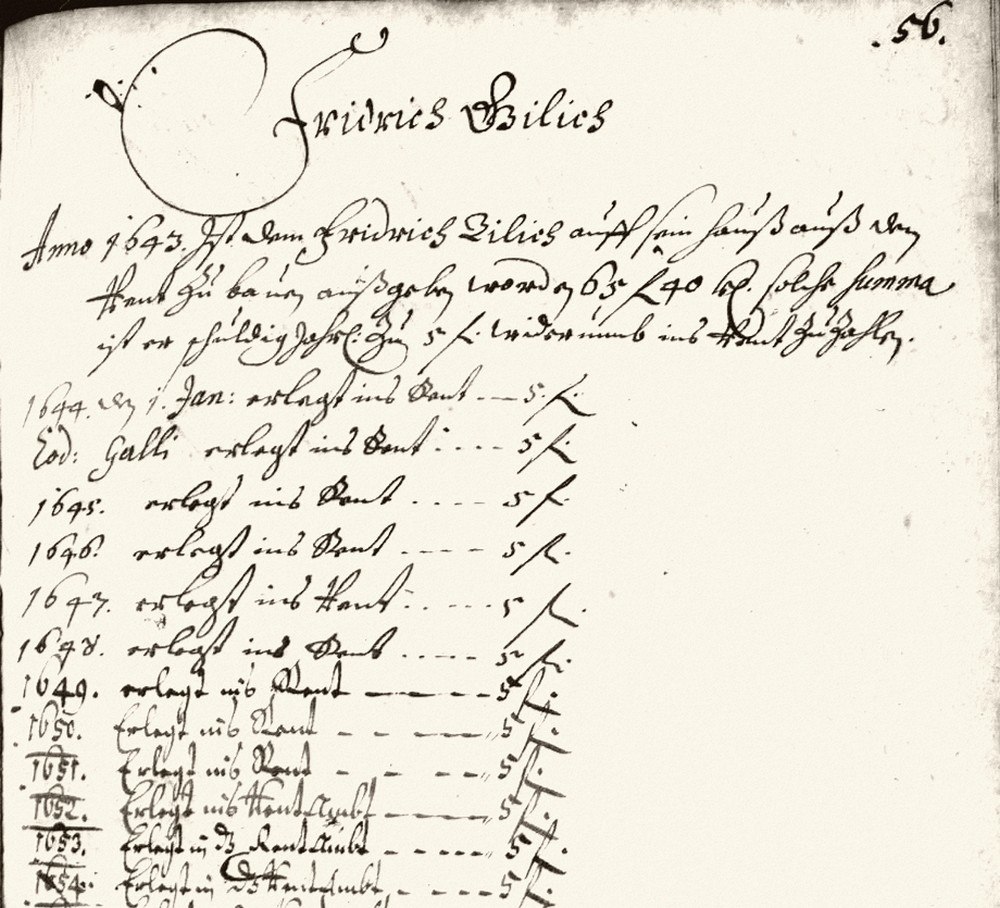 .56.
Fridrich Bilich
Anno 1643. Ist dem Fridrich Bilich auff sein hauß auß den
Rent Zu bauen außgeben worden 65 fl 40 kr. solche summa
ist er schuldig Jahrl: Zu 5 fl. widerumb ins Rent Zu Zahlen.
1644. den 1. Jan: erlegt ins Rent --- 5. fl.
Eod: Galli erlegt ins Rent : ---- 5 fl
1645. erlegt ins Rent .... 5 fl.
1646. erlegt ins Rent ---- 5 fl.
1647. erlegt ins Rent ..---. 5 fl.
1648. erlegt ins Rent ..... 5 fl.
1649. erlegt ins Rent ———— 5 fl.
1650. Erlegt ins Rent - - —— 5 fl.
1651. Erlegt ins Rent - - --- 5 fl.
1652. Erlegt ins Rent Ambt ———— 5 fl.
1653. Erlegt in dz Rent Ambt ------ 5 fl.
1654. Erlegt in dz Rent Ambt, ----- 5 fl.